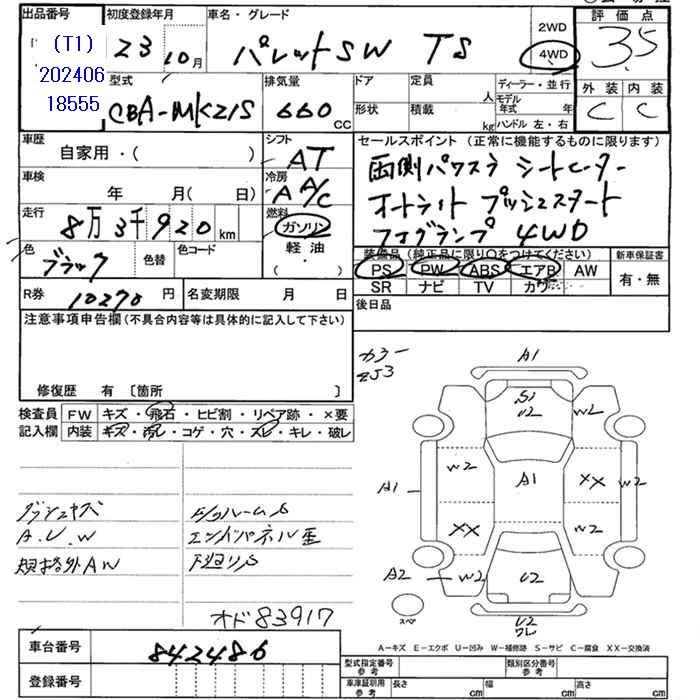 出品番号 初度登録年月 車名・グレード 評価点
(T1)
202406
18555
23 10月 パレットSW TS 2WD 4WD 3.5
型式 排気量 ドア 定員 人 ディーラー・並行 外装 内装
CBA-MK21S 660 CC 形状 積載 kg モデル年式 年 ハンドル 左・右 C C
車歴 自家用・( ) シフト AT
セールスポイント (正常に機能するものに限ります)
両側パワスラ シートヒーター
オートライト プッシュスタート
フォグランプ 4WD
車検 年 月( 日) 冷房 A A/C
走行 8万3千920 km 燃料 ガソリン 軽油・( )
色 ブラック 色替 色コード
装備品 (純正品に限り○をつけてください) 新車保証書
PS PW ABS エアB AW 有・無
SR ナビ TV カワ
R券 10270 円 名変期限 月 日
後日品
注意事項申告欄(不具合内容等は具体的に記入して下さい)
修復歴 有 〔箇所 〕
検査員 FW キズ・飛石・ヒビ割・リペア跡・×要
記入欄 内装 キズ・汚レ・コゲ・穴・スレ・キレ・破レ
カラー
ZJ3
A1
S1
U2 W2
W2 A1 XX
A1
XX W2
A2 W2 U2
U2
ワレ
スペア
ダッシュキズ
A.U.W
エンドパネル歪
下廻りS
規格外AW
オド83917
A-キズ E-エクボ U-凹み W-補修跡 S-サビ C-腐食 XX-交換済
車台番号 842486
登録番号
型式指定番号 参考 類別区分番号 参考
車庫証明用 参考 長さ cm 幅 cm 高さ cm